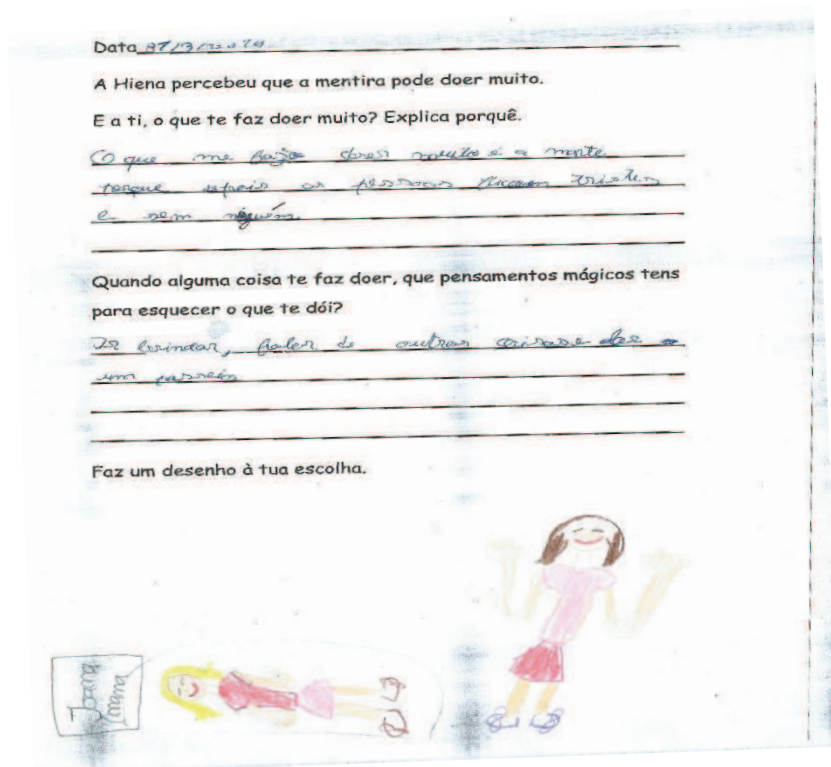 Data
A Hiena percebeu que a mentira pode doer muito.
E a ti, o que te faz doer muito? Explica porquê.
O que me faz doer muito é a morte
porque depois as pessoas ficam tristes
e sem niguém.
Quando alguma coisa te faz doer, que pensamentos mágicos tens
para esquecer o que te dói?
Ir brincar, falar de outras coisas e dar
um passeio
Faz um desenho à tua escolha.
Joana